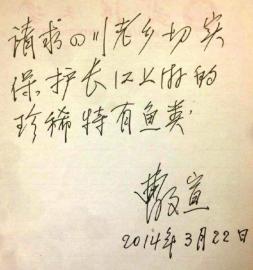 请求四川老乡切实
保护长江上游的
珍稀特有鱼类！
曹文宣
2014年3月22日